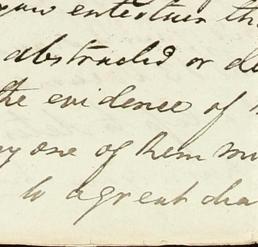 entertain th
abstracted or de
the evidence of
one of them mu
to a great dea